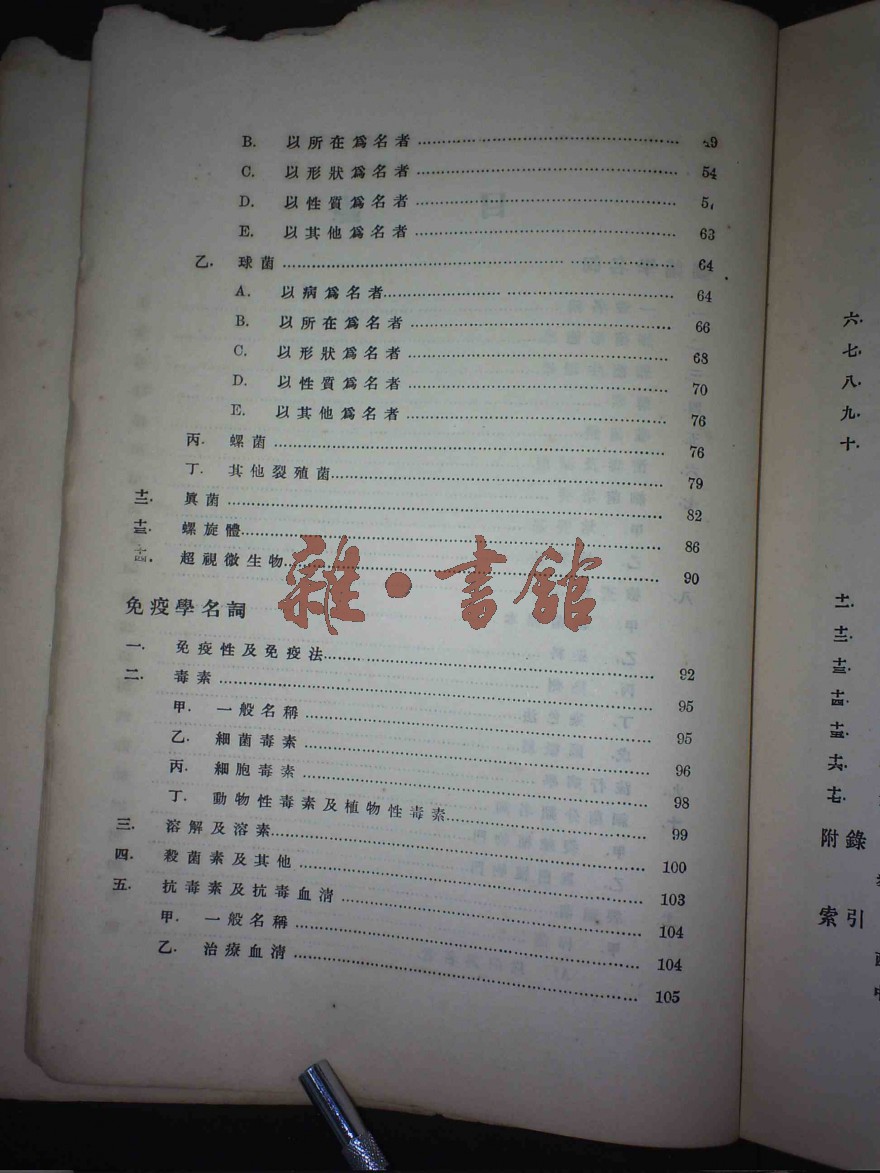 B. 以所在爲名者 49
C. 以形狀爲名者 54
D. 以性質爲名者
E. 以其他爲名者 63
乙. 球菌 64
A. 以病爲名者 64
B. 以所在爲名者 66
C. 以形狀爲名者 68
D. 以性質爲名者 70
E. 以其他爲名者 76
丙. 螺菌 76
丁. 其他裂殖菌 79
十二. 眞菌 82
十三. 螺旋體 86
十四. 超視微生物 90
雜·書館
免疫學名詞
一. 免疫性及免疫法 92
二. 毒素 95
甲. 一般名稱 95
乙. 細菌毒素 96
丙. 細胞毒素 98
丁. 動物性毒素及植物性毒素 99
三. 溶解及溶素 100
四. 殺菌素及其他 103
五. 抗毒素及抗毒血清 104
甲. 一般名稱 104
乙. 治療血清 105
六.
七.
八.
九.
十.
十一.
十二.
十三.
十四.
十五.
十六.
十七.
附錄
索引